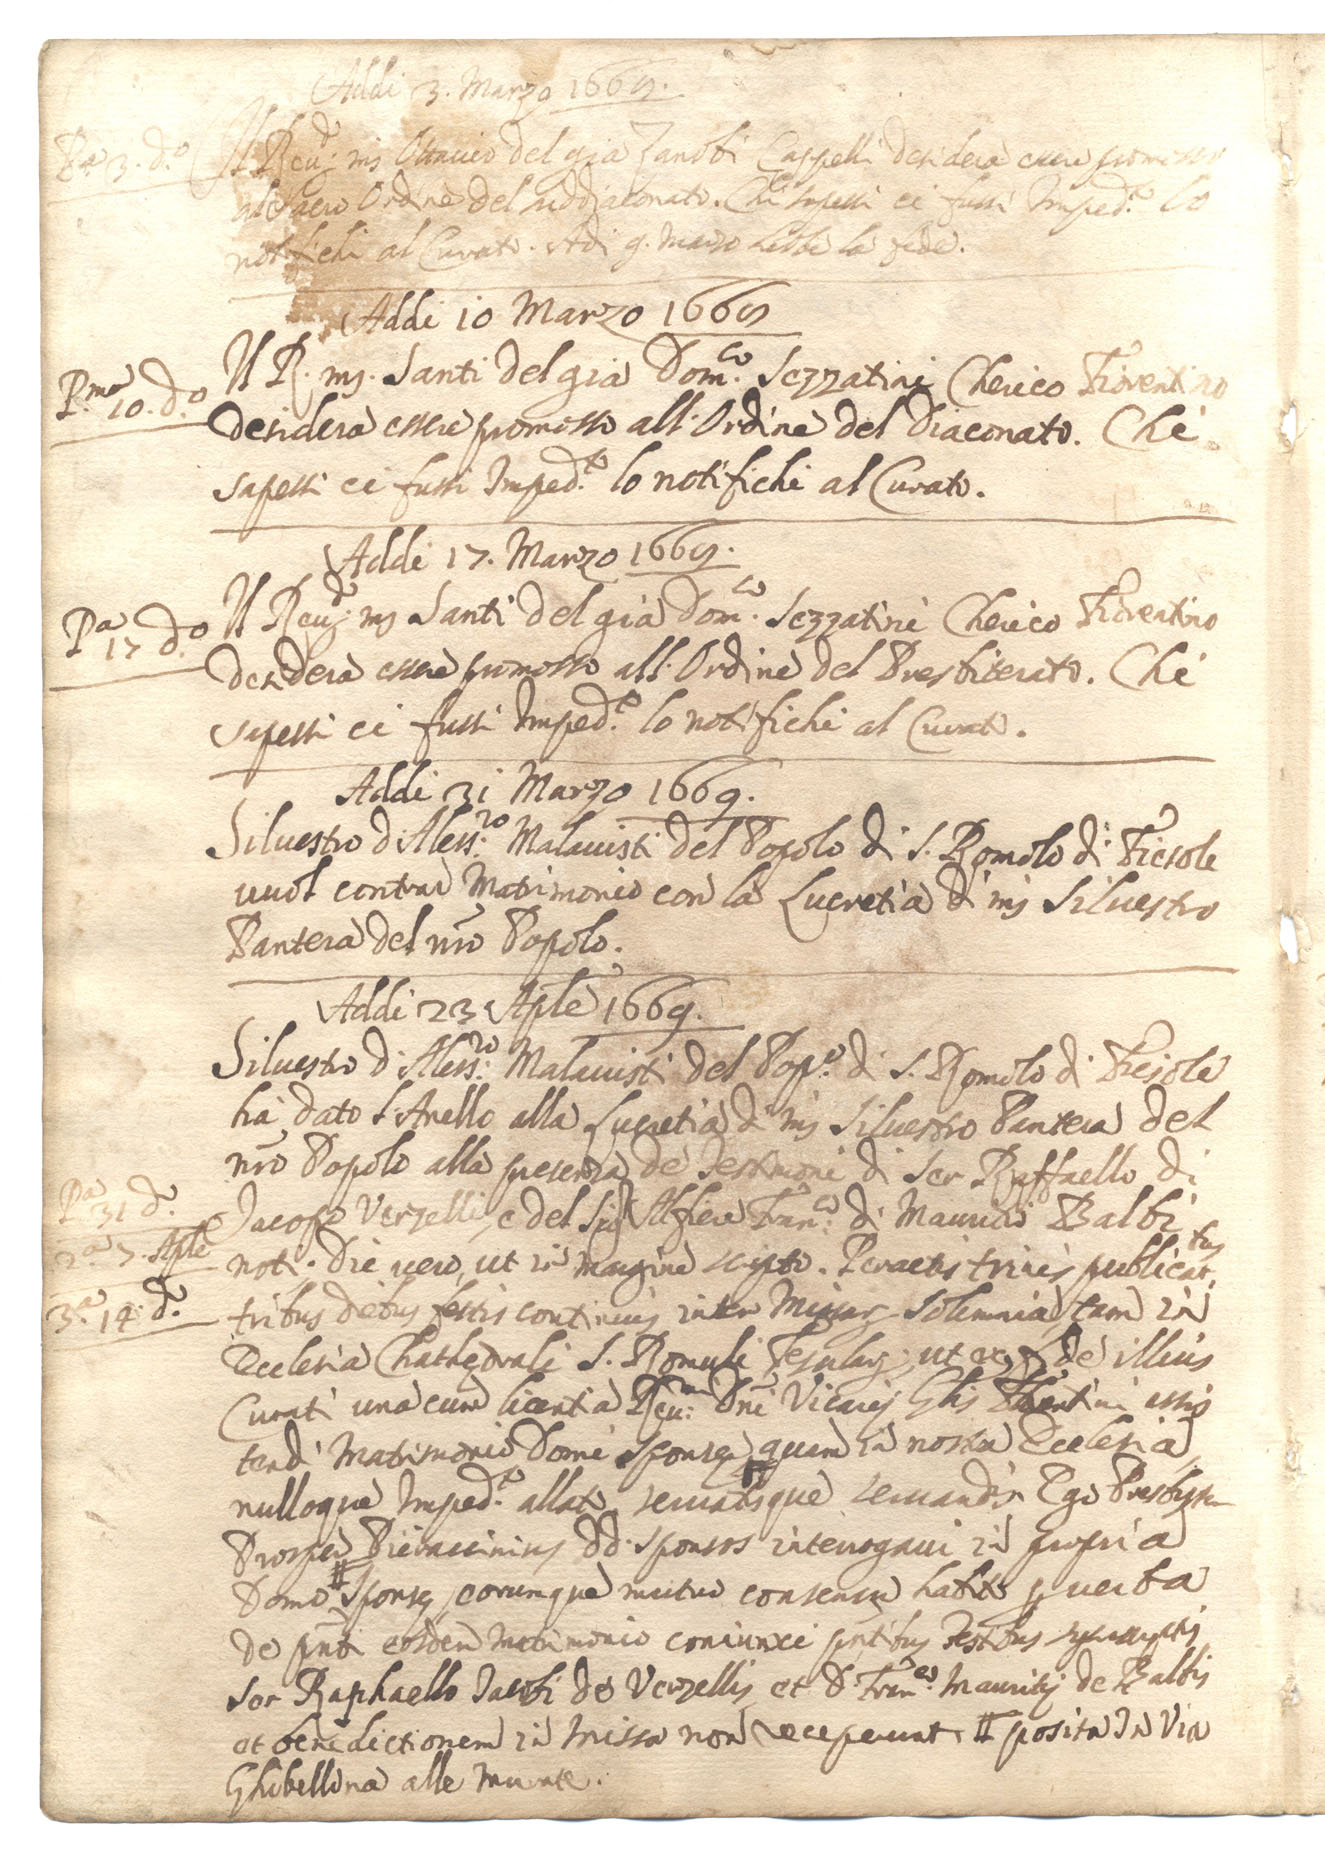 Addi 3. Marzo 1669.
P.a 3. d.o
Il Reu.do ms Ottavio del già Zanobi Cappelli desidera essere promosso
al Sacro Ordine del suddiaconato. Chi sapessi ci fussi Imped.to lo
notifichi al Curato. Adi 9. Marzo hebbe la fede.
Addi 10 Marzo 1669
P.ma 10. d.o
Il R. ms. Santi del già Dom.co Sezzatini Cherico Fiorentino
desidera essere promosso all'Ordine del Diaconato. Chi
sapessi ci fussi Imped.to lo notifichi al Curato.
Addi 17. Marzo 1669.
P.a 17 d.o
Il Reu.do ms Santi del già Dom.co Sezzatini Cherico Fiorentino
desidera essere promosso all'Ordine del Presbiterato. Chi
sapessi ci fussi Imped.to lo notifichi al Curato.
Addi 31 Marzo 1669.
Siluestro d'Aless.ro Malauisti del Popolo di S. Romolo di Fiesole
vuol contrar Matrimonio con la Lucretia di ms Siluestro
Pantera del nro Popolo.
Addi 23 Aple 1669.
Siluestro d'Aless.ro Malauisti del Pop.o di S. Romolo di Fiesole
ha dato l'Anello alla Lucretia di ms Siluestro Pantera del
nro Popolo alla presenza de Testimoni di Ser Raffaello di
P.a 31 d.o
Jacopo Verzelli, e del Sig.r Alfiere Fran.co di Mauritio Balbi
2.a 7. Aple
noti. Die uero, ut in margine scripto. Peractis trinis publicat.tus
3.a 14. d.o
tribus diebus festis continuis inter Missar. Solemnia, tam in
Ecclesia Chathedrali S. Romuli Fesular., ut ex fide illius
Curati una cum licentia Reu.mi Dni Vicarij Glis Florentini assis
tendi Matrimonio Domi Sponsę, quam in nostra Ecclesia,
nulloque Imped.to allato, seruatisque seruandis Ego Presbyter
Prosper Pieraccinius dd. sponsos interrogaui in propria
Domo # Sponsę, eorumque mutuo consensu habito p uerba
de pnti eosdem Matrimonio coniunxi pntibus testibus
Ser Raphaello Jacobi de Verzellis et D. Fran.co Mauritij de Balbis
et benedictionem in Missa non receperunt. # posita in Via
Ghibellina alle Murate.